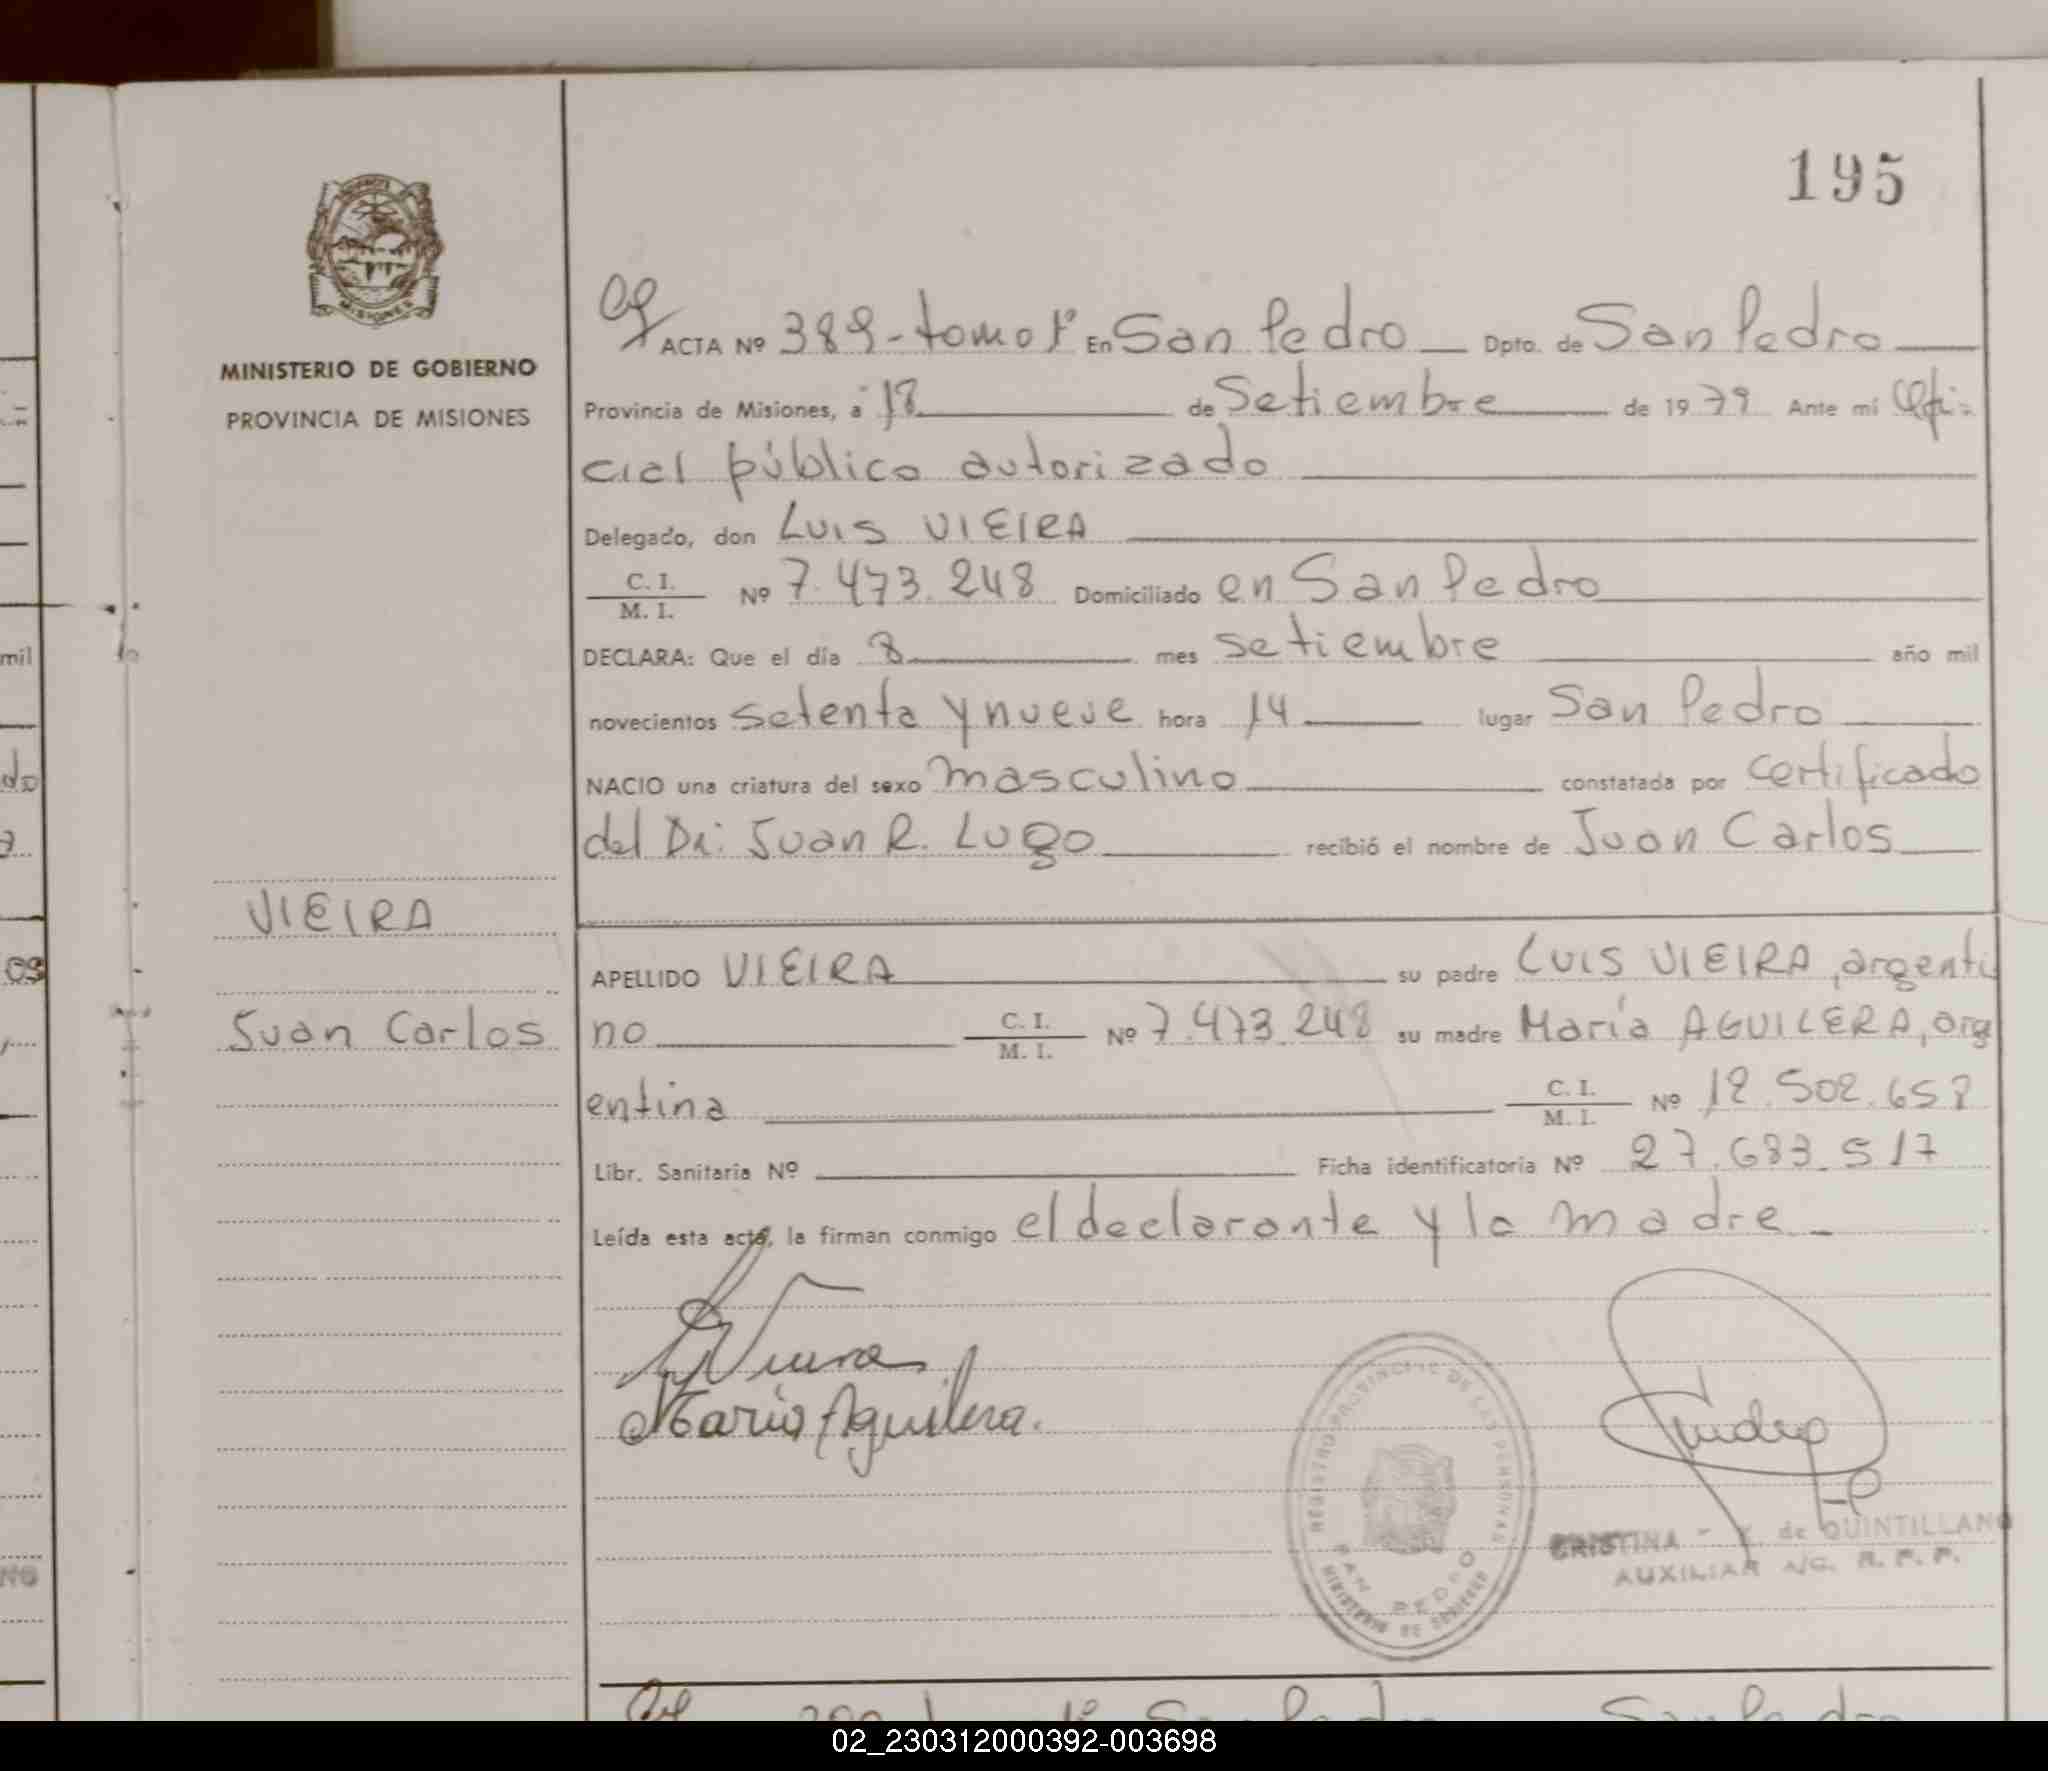 195
MINISTERIO DE GOBIERNO
PROVINCIA DE MISIONES
VIEIRA
Juan Carlos
ACTA Nº 389-tomo 1º En San Pedro Dpto. de San Pedro
Provincia de Misiones, a 18 de Setiembre de 1979 Ante mí Ofi-
cial público autorizado
Delegado, don LUIS VIEIRA
C. I.
M. I. Nº 7.473.248 Domiciliado en San Pedro
DECLARA: Que el día 8 mes setiembre año mil
novecientos setenta y nueve hora 14 lugar San Pedro
NACIO una criatura del sexo masculino constatada por certificado
del Dr. Juan R. Lugo recibió el nombre de Juan Carlos
APELLIDO VIEIRA su padre LUIS VIEIRA, argenti
no C. I.
M. I. Nº 7.473.248 su madre María AGUILERA, arg
entina C. I.
M. I. Nº 12.502.658
Libr. Sanitaria Nº Ficha identificatoria Nº 27.683.517
Leída esta acta, la firman conmigo el declarante y la madre
María Aguilera.
REGISTRO PROVINCIAL DE LAS PERSONAS
SAN PEDRO
MINISTERIO DE GOBIERNO
CRISTINA de QUINTILLANO
AUXILIAR A/C. R. P. P.
mil
do
os
02_230312000392-003698